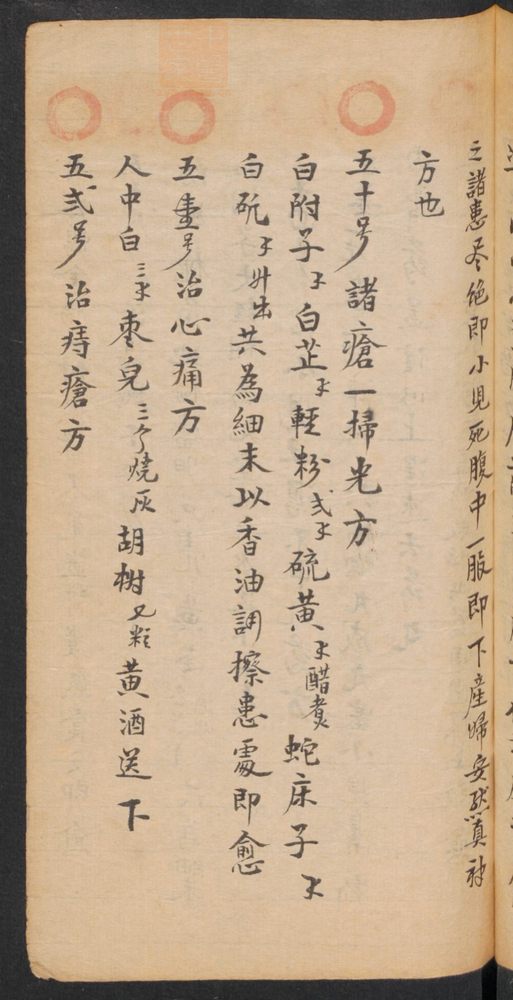 之諸患尽絶即小児死腹中一服即下産婦安然真神
方也
五十号 諸瘡一掃光方
白附子 白芷 輕粉 弍 硫黄 醋煮 蛇床子
白矾 升出 共為細末以香油調擦患處即愈
五壹号治心痛方
人中白 三 枣皃 三个烧灰 胡椒 粒 黄酒送下
五弍号治痔瘡方